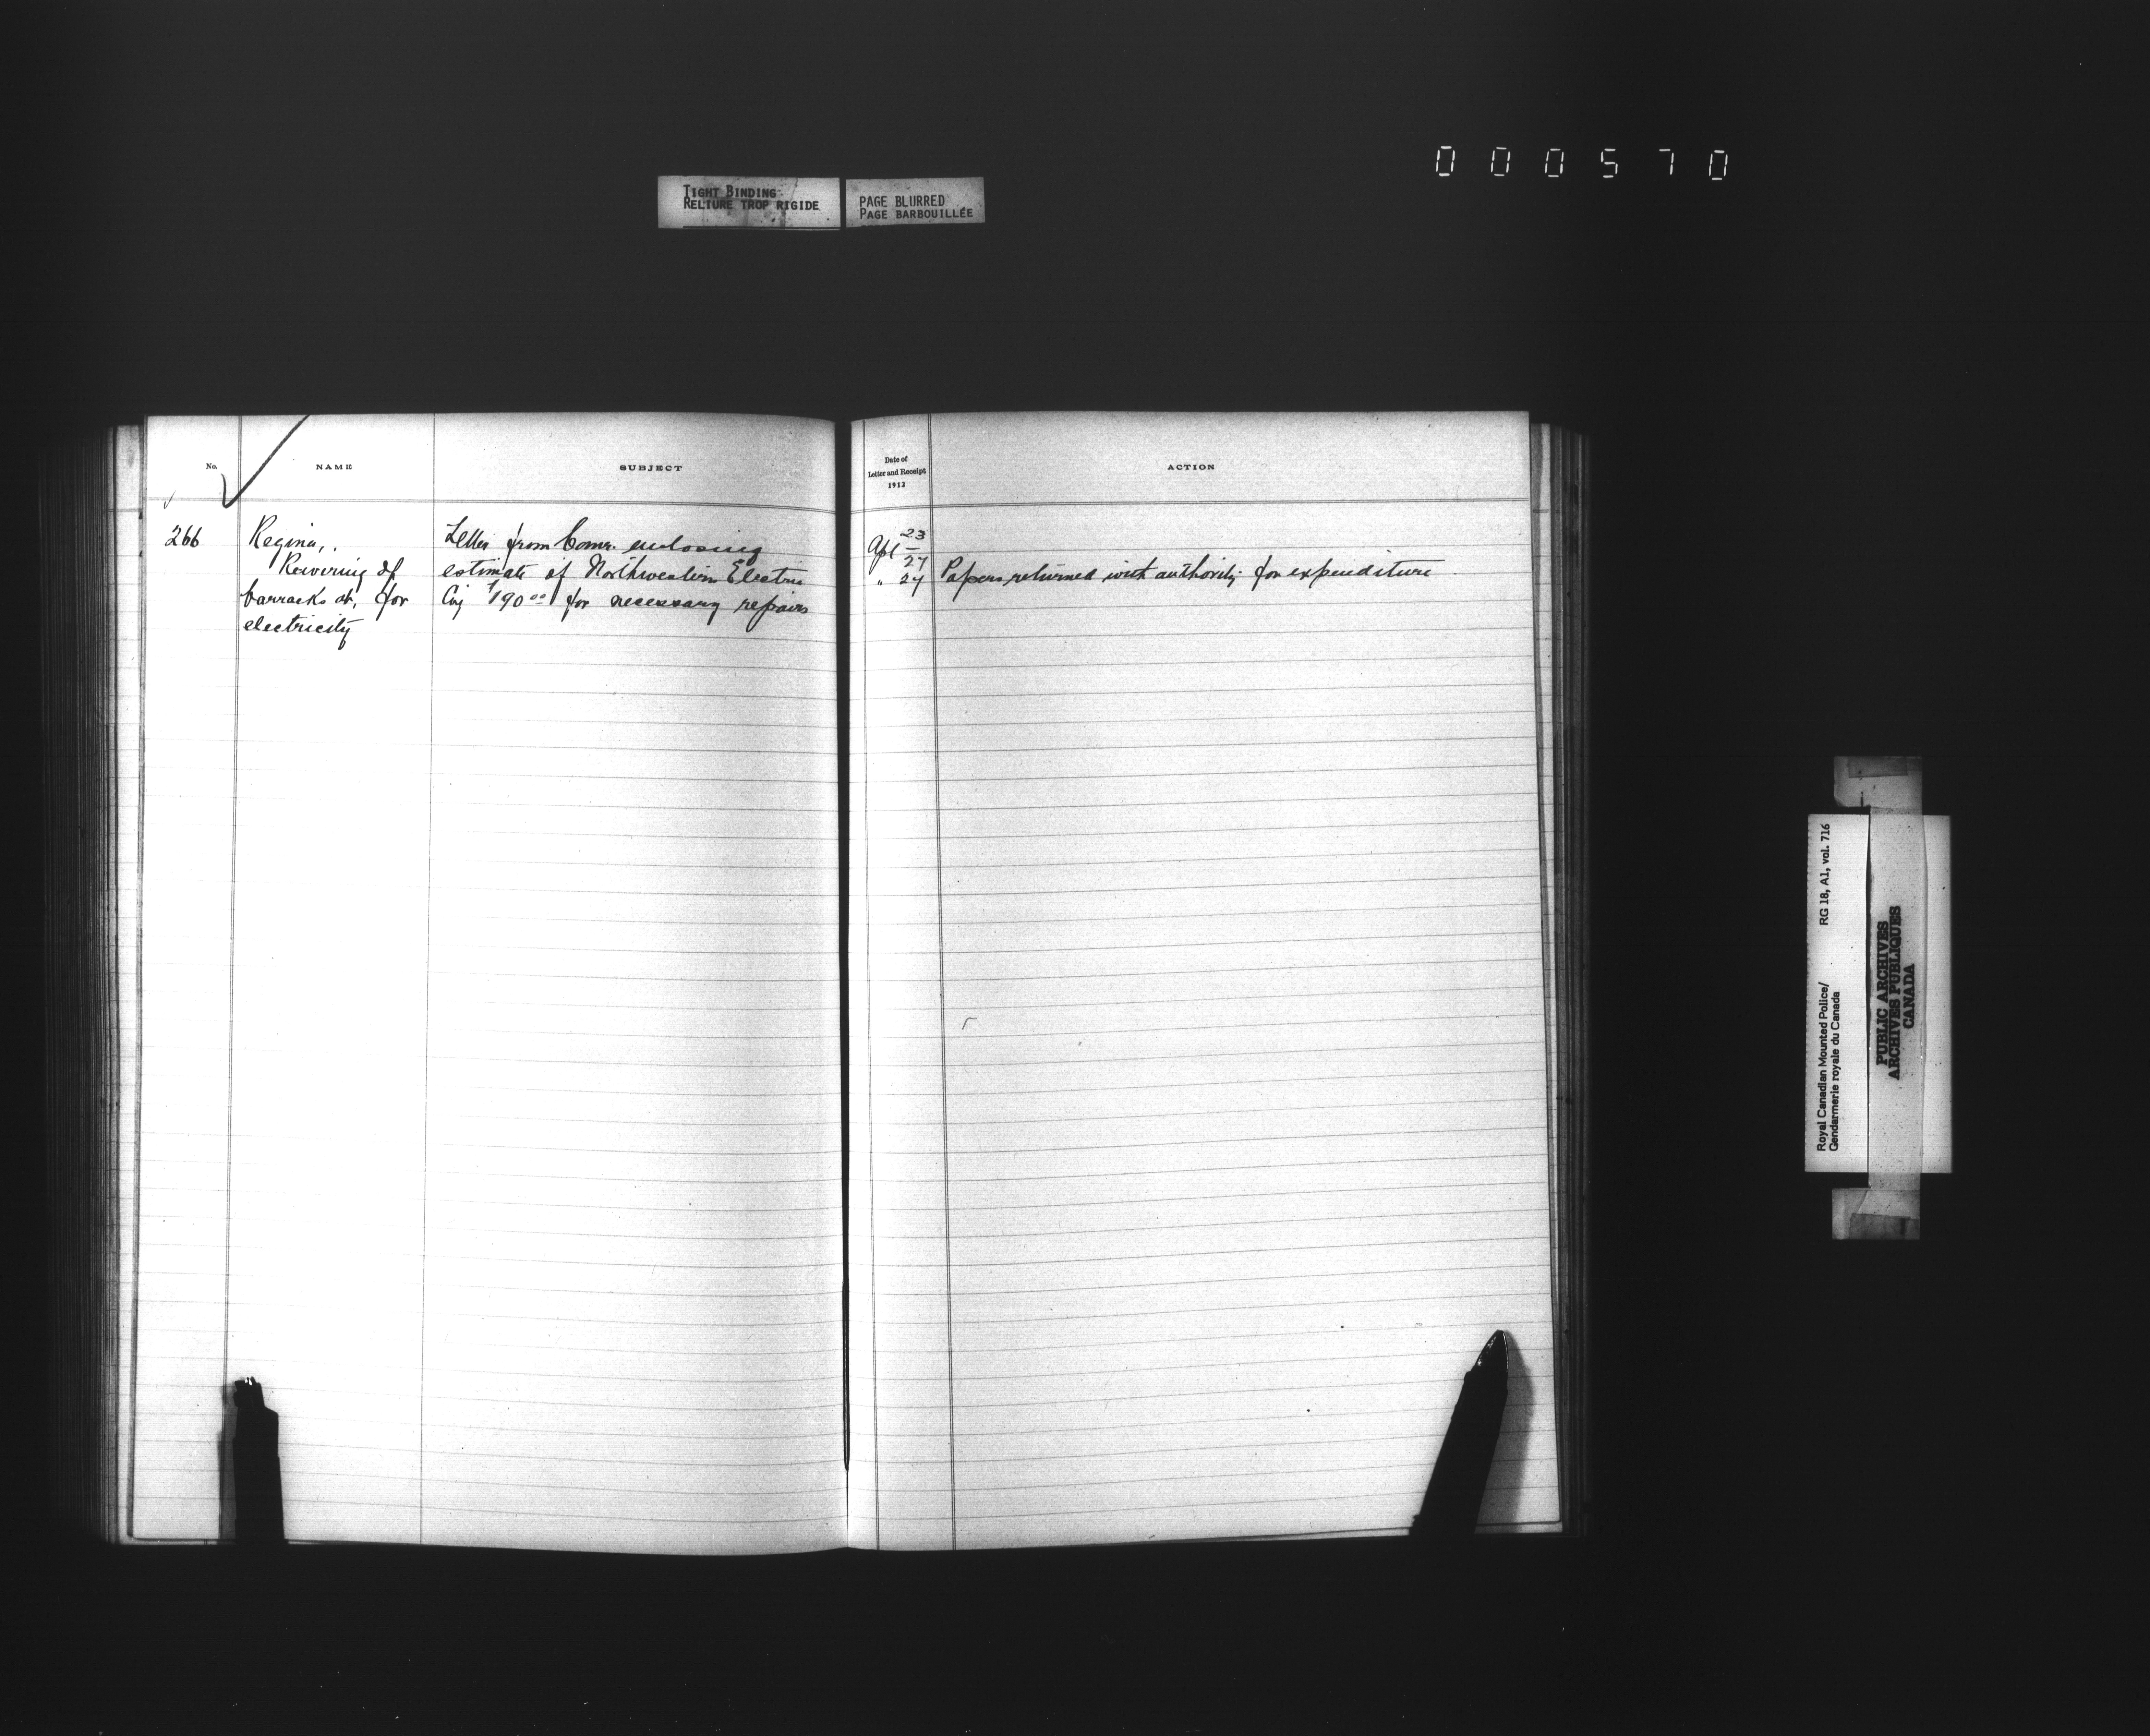 000570
TIGHT BINDING
RELIURE TROP RIGIDE
PAGE BLURRED
PAGE BARBOUILLÉE
No.
NAME
SUBJECT
Date of
Letter and Receipt
1912
ACTION
266
Regina,
Rewiring of
barracks at, for
electricity
Letter from Comr. enclosing
estimate of Northwestern Electric
Coy $190.00 for necessary repairs
Apl 23
27
" 27
Papers returned with authority for expenditure
Royal Canadian Mounted Police/
Gendarmerie royale du Canada
RG 18, A1, vol. 716
PUBLIC ARCHIVES
ARCHIVES PUBLIQUES
CANADA